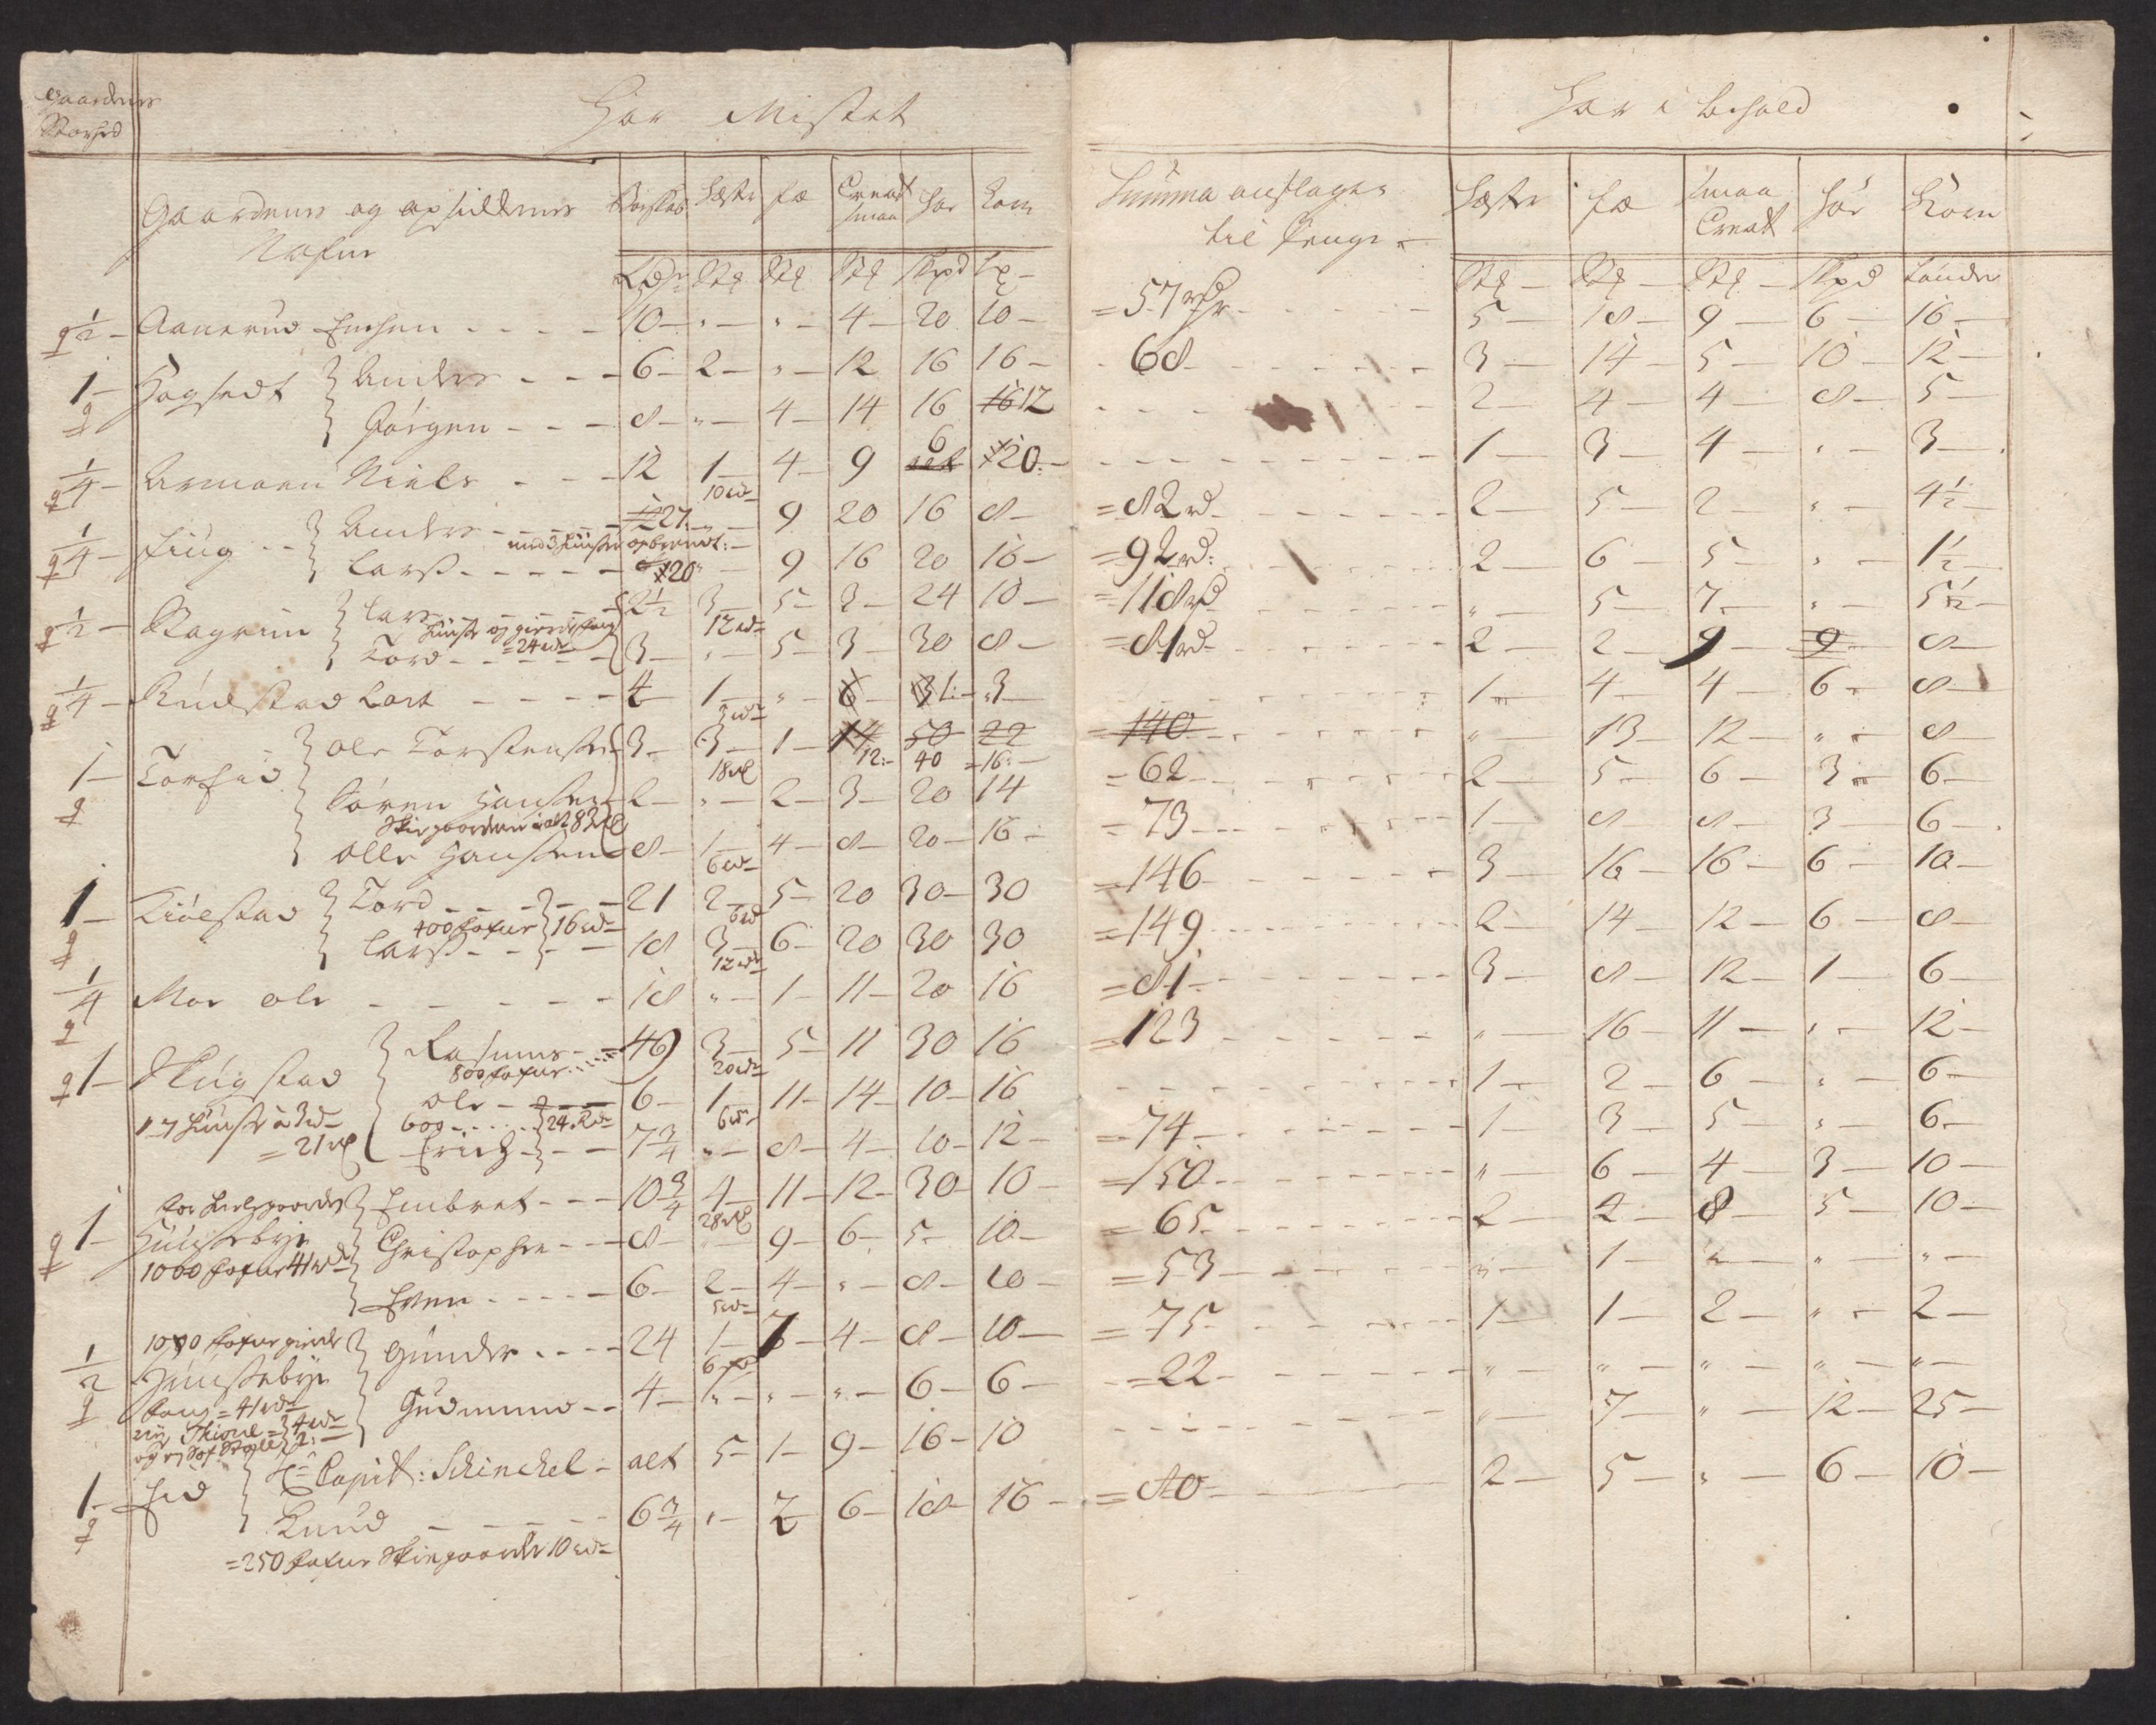 Gaardenes Storhed
Har Mistet
Gaardenes og opsidderens Nafne | Boeskab | Heste | Fæ | Creat smaa | Hør | Korn
Rdr | Stk | Stk | Stk | Skpd | Tr
g 1/2 – Aanerud Engen - - - - 10 – | " – | " – | 4 – | 20 | 10 –
1 – g Hagstedt } Anders - - - 6 – | 2 – | " – | 12 | 16 | 16 –
} Jörgen - - - 8 – | " – | 4 – | 14 | 16 | 16 12
g 1/4 – Armoen Niels - - - 12 | 1 – 10 rd | 4 – | 9 | 6 | 20 –
g 1/4 – Hiug - - } Anders - - - - 27 | " – | 9 | 20 | 16 | 8 –
med 3 huuse opbrændt:
} Lars - - - - - 20 | – | 9 | 16 | 20 | 16 –
g 1/2 – Stagrim } Lars - - 2 1/2 | 3 – 12 rd | 5 – | 3 – | 24 | 10 –
Huuse og gierdefang = 24 rd
} Tord - - - - 3 – | " – | 5 – | 3 – | 30 | 8 –
g 1/4 – Rudstad Lars - - - - 4 | 1 – 3 rd | " – | 6 – | 31:– | 3 –
1 – g Torhud } Ole Torstensen 3 – | 3 – 18 rd | 1 – | 14 12:– | 50 40 | 22 = 16:–
} Sören Hansen 2 – | " – | 2 – | 3 – | 20 | 14
Skiegaarden i alt 83 rd
} Olle Hansen 8 – | 1 – 6 rd | 4 – | 8 – | 20 – | 16 –
1 – g Kiölstad } Tord - - - } - - 21 | 2 – 6 rd | 5 – | 20 | 30 – | 30
400 Fafne } 16 rd
} Lars - - } - - 18 | 3 – 12 rd | 6 – | 20 | 30 | 30
1/4 g Moe Ole - - - - - - 18 | " – | 1 – | 11 – | 20 | 16
g 1 – Skugstad } Rasmus - - 49 | 3 – 20 rd | 5 – | 11 | 30 | 16
800 Fafne
} Ole - - - 6 – | 1 – 6 rd | 11 – | 14 – | 10 – | 16
17 Huuse à 3 rd = 21 rd
600 - - - - } 24 Rd
} Erich - } - - 7 3/4 | " – | 8 – | 4 – | 10 – | 12 –
g 1 – Huusebye } Embret - - - 10 3/4 | 4 – 28 rd | 11 – | 12 – | 30 – | 10 –
1000 Fafne 41 rd
} Christopher - - - 8 – | – | 9 – | 6 – | 5 – | 10 –
} Even - - - - - 6 – | 2 – 5 rd | 4 – | " – | 8 – | 10 –
1/2 g 1000 Fafne gierde
Huusebye } Gunder - - - - 24 | 1 – 6 rd | 7 – | 4 – | 8 – | 10 –
fang = 41 rd
} Gudmund - - 4 – | " – | " – | " – | 6 – | 6 –
1 – g Eid } Hr Capit: Schinckel – alt | 5 – | 1 – | 9 – | 16 – | 10
} Knud - - - - - 6 3/4 | " – | 2 | 6 – | 18 – | 16 –
= 250 Fafne Skiegaarde 10 rd
Har i behold
Summa anslagen til Penge | Heste | Fæ | Smaa Creat | Hør | Korn
Stk – | Stk – | Stk – | Skpd | Tønder
= 57 rdr | 5 – | 18 – | 9 – | 6 – | 16 –
68 - - - | 3 – | 14 – | 5 – | 10 – | 12 –
- - - | 2 – | 4 – | 4 – | 8 – | 5 –
- - - | 1 – | 3 – | 4 – | " – | 3 –
= 82 rd | 2 – | 5 – | 2 – | " – | 4 1/2
= 92 rd: | 2 – | 6 – | 5 – | " – | 1 1/2
= 118 rd | " – | 5 – | 7 – | " – | 5 1/2 –
= 81 rd | 2 – | 2 – | 9 – | 9 | 8 –
- - - | 1 – | 4 – | 4 – | 6 – | 8 –
= 140 | " – | 13 – | 12 – | " – | 8 –
= 62 | 2 – | 5 – | 6 – | 3 – | 6 –
= 73 | 1 – | 8 – | 8 – | 3 – | 6 –
= 146 | 3 – | 16 – | 16 – | 6 – | 10 –
= 149 | 2 – | 14 – | 12 – | 6 – | 8 –
= 81 | 3 – | 8 – | 12 – | 1 – | 6 –
= 123 | " – | 16 – | 11 – | " – | 12 –
- - - | 1 – | 2 – | 6 – | " – | 6 –
= 74 | 1 – | 3 – | 5 – | " – | 6 –
= 150 | " – | 6 – | 4 – | 3 – | 10 –
= 65 | 2 – | 2 – | 8 – | 5 – | 10 –
= 53 | " – | 1 – | " – | " – | " –
= 75 | 1 – | 1 – | 2 – | " – | 2 –
= 22 | " – | " – | " – | " – | " –
- - - | " – | 7 – | " – | 12 – | 25 –
= 80 | 2 – | 5 – | " – | 6 – | 10 –